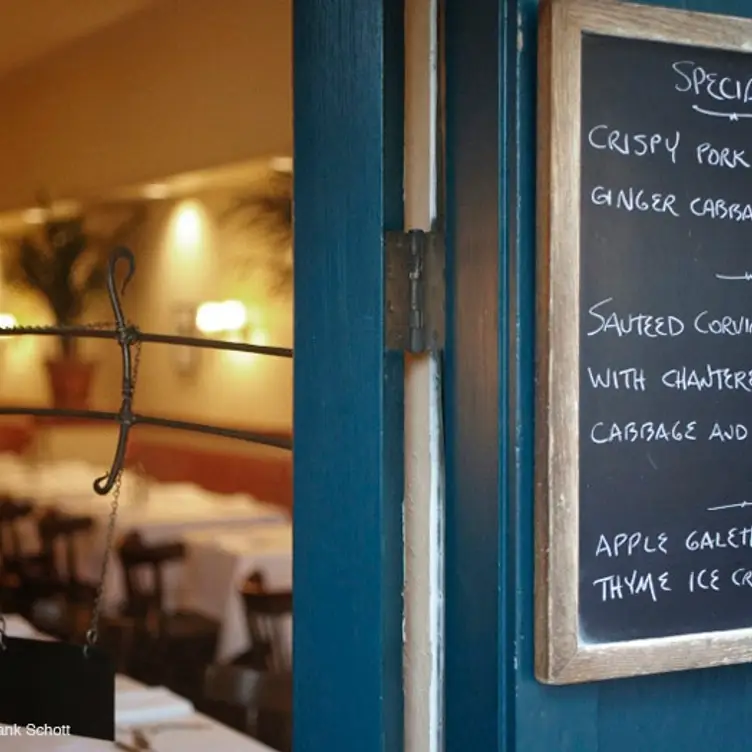 SPECIA
CRISPY PORK
GINGER CABBA
SAUTEED CORVI
WITH CHANTERE
CABBAGE AND
APPLE GALET
THYME ICE CR
ank Schott